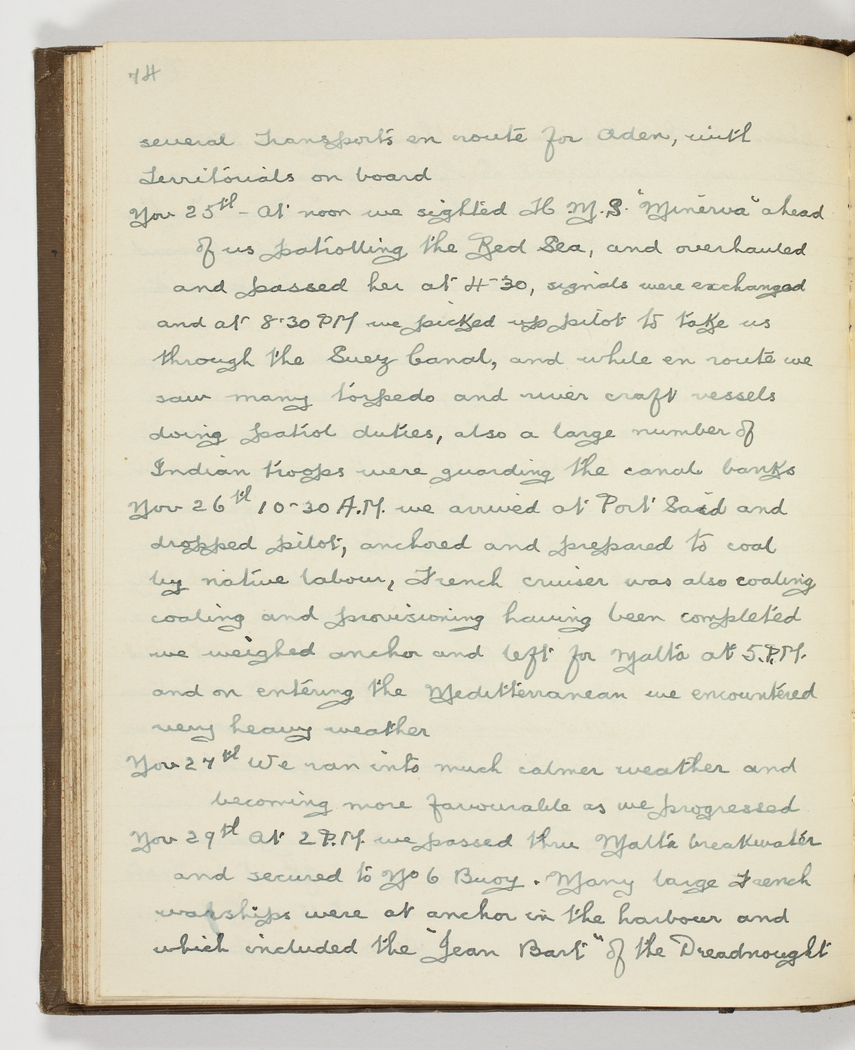 74
several Transports en route for Aden, with
Territorials on board
Nov 25th - At noon we sighted H.M.S. "Minerva" ahead
of us patrolling the Red Sea, and overhauled
and passed her at 4-30, signals were exchanged
and at 8-30 PM we picked up pilot to take us
through the Suez Canal, and while en route we
saw many torpedo and river craft vessels
doing patrol duties, also a large number of
Indian troops were guarding the canal banks
Nov 26th 10-30 A.M. we arrived at Port Said and
dropped pilot, anchored and prepared to coal
by native labour, French cruiser was also coaling
coaling and provisioning having been completed
we weighed anchor and left for Malta at 5.P.M.
and on entering the Mediterranean we encountered
very heavy weather
Nov 27th We ran into much calmer weather and
becoming more favourable as we progressed
Nov 29th At 2 P.M. we passed thru Malta breakwater
and secured to No 6 Buoy. Many large French
warships were at anchor in the harbour and
which included the "Jean Bart" of the Dreadnought